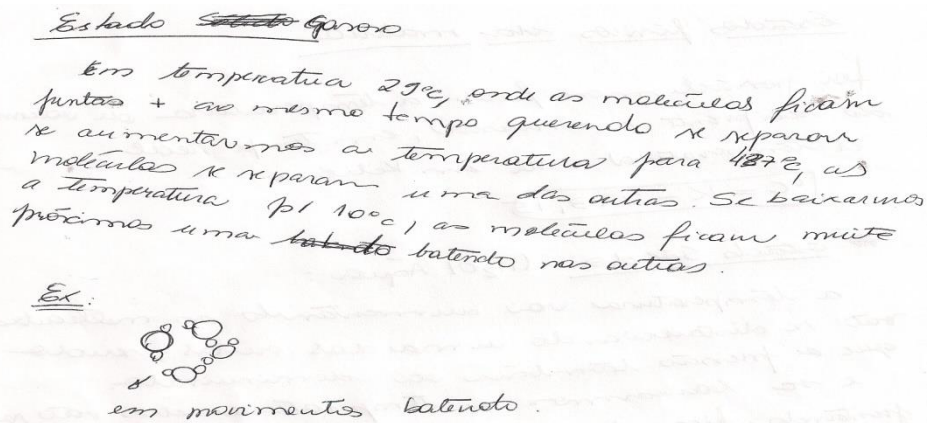 Estado Gasoso
Em temperatura 29°C, onde as moléculas ficam
juntas + ao mesmo tempo querendo se separar
se aumentarmos a temperatura para 427°C, as
moléculas se separam uma das outras. Se baixarmos
a temperatura p/ 10°C, as moléculas ficam muito
próximas uma batendo nas outras.
Ex:
em movimentos batendo.